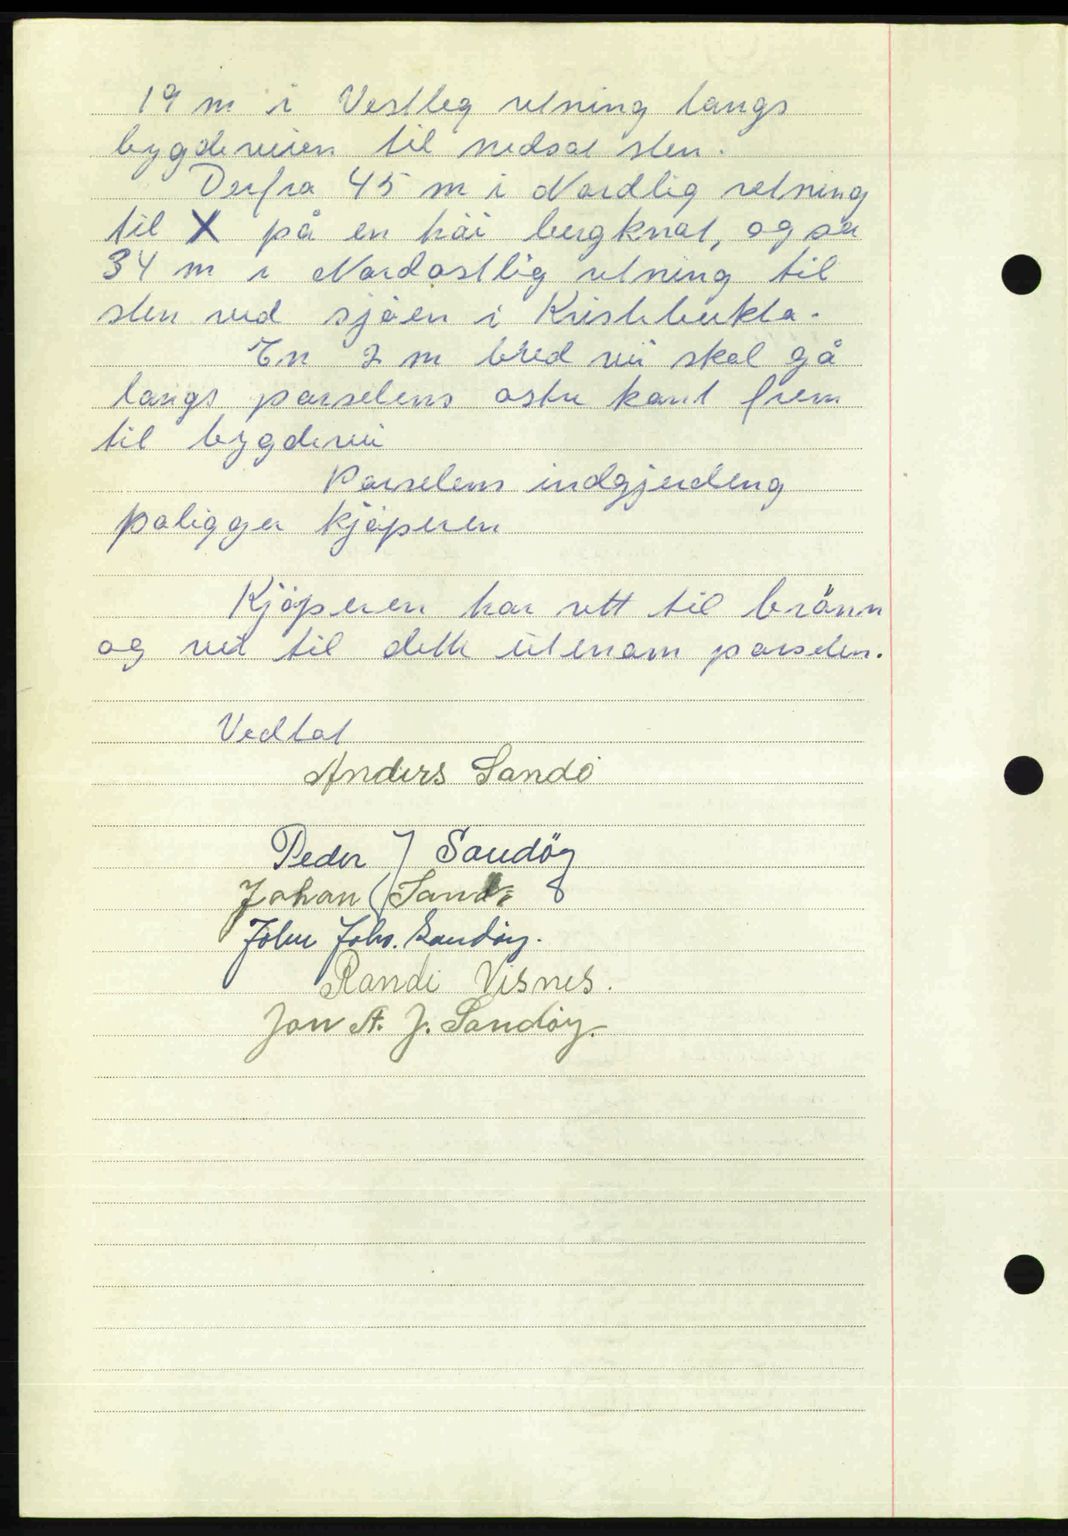 19 m i Vestleg retning langs
bygdeveien til nedsat sten.
Derfra 45 m i Nordlig retning
til X på en häi bergknat, og så
34 m i Nordostlig retning til
sten ved sjöen i Kristibukta.
En 2 m bred vei skal gå
langs parselens östre kant frem
til bygdevei
Parselens indgjerdeng
påligger kjöperen
Kjöperen har rett til brönn
og vei til dette utenom parselen.
Vedtat
Anders Sandö
Peder J Sandöy
Johan
John Johs. Sandöy.
Randi Visnes.
Jon A. J. Sandöy.